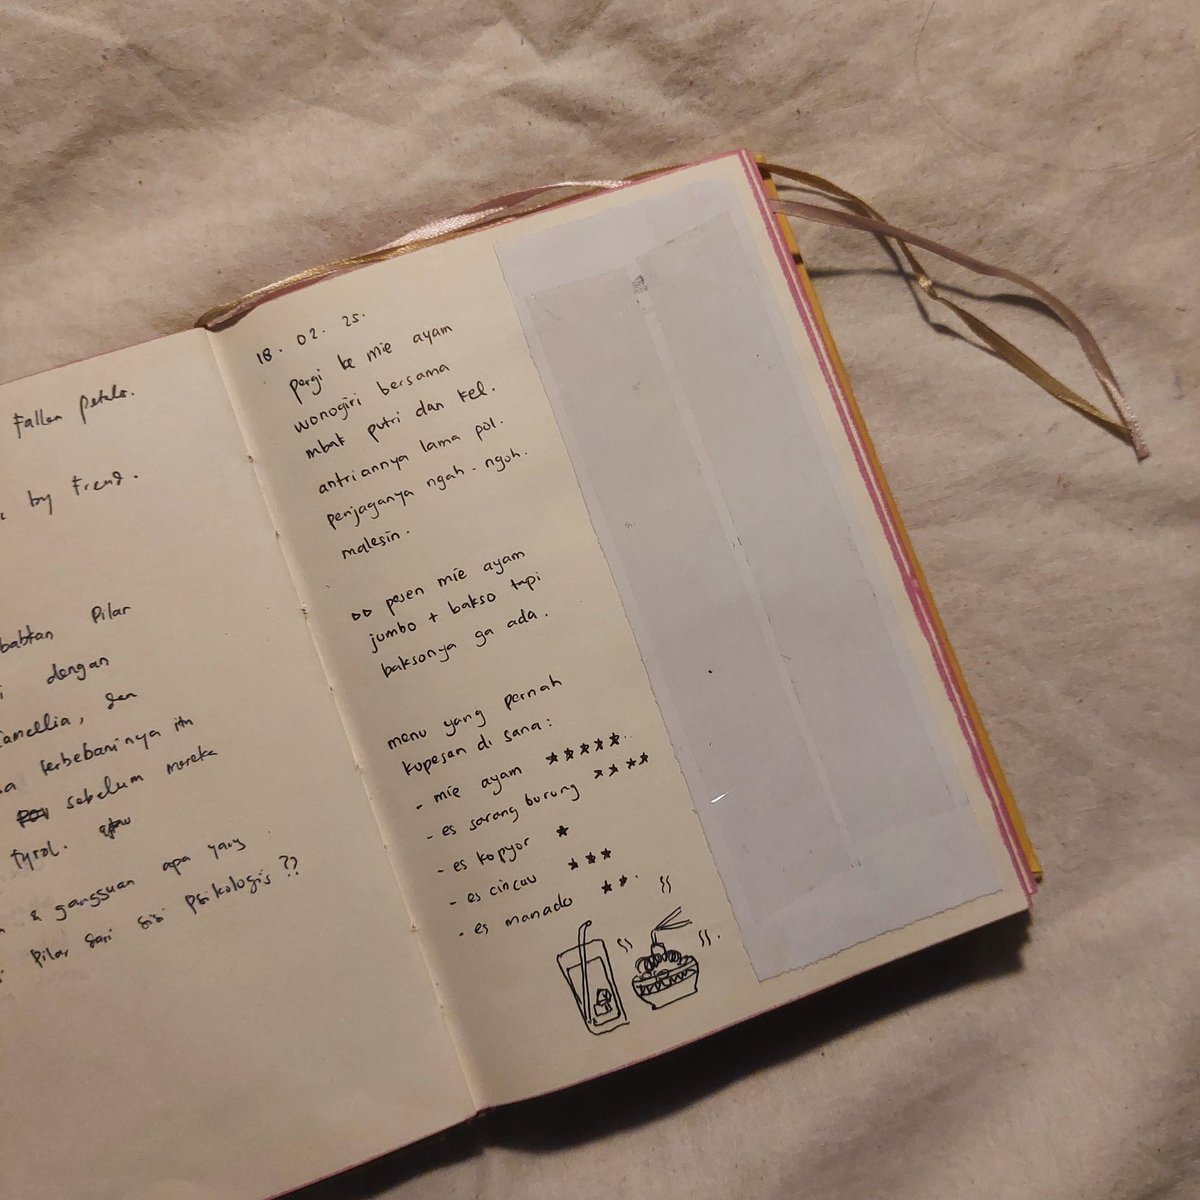 Fallen petals.
by Freud.
babkan Pilar
dengan
Camellia, dan
terbebaninya itu
sebelum mereka
Tyrol. atau
& gangguan apa yang
Pilar dari sisi psikologis ??
18. 02. 25.
pergi ke mie ayam
wonogiri bersama
mbak putri dan kel.
antriannya lama pol.
penjaganya ngah-ngoh.
malesin.
DD pesen mie ayam
jumbo + bakso tapi
baksonya ga ada.
menu yang pernah
kupesan di sana:
- mie ayam ★★★★★
- es sarang burung ★★★★
- es kopyor ★
- es cincau ★★★
- es manado ★★